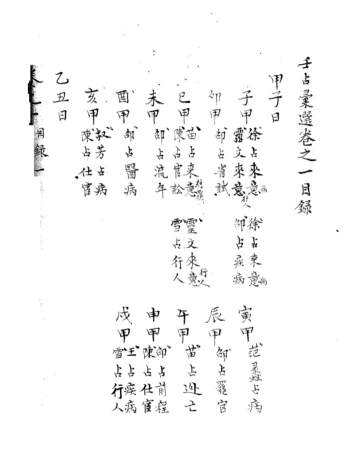 壬占彙選卷之一目録
甲子日
子甲 徐占來意 病 徐占來意 病
靈文來意 邵占疾病
寅甲 范蠡占病
卯甲 邵占省試
辰甲 邵占罷官
巳甲 苗占來意 靈文來意 行人
陳占官訟 雪占行人
午甲 苗占逃亡
未甲 邵占流年
申甲 邵占前程
陳占仕宦
酉甲 邵占醫病
戌甲 王占疾病
雪占行人
亥甲 敘芳占病
陳占仕宦
乙丑日
目録 一